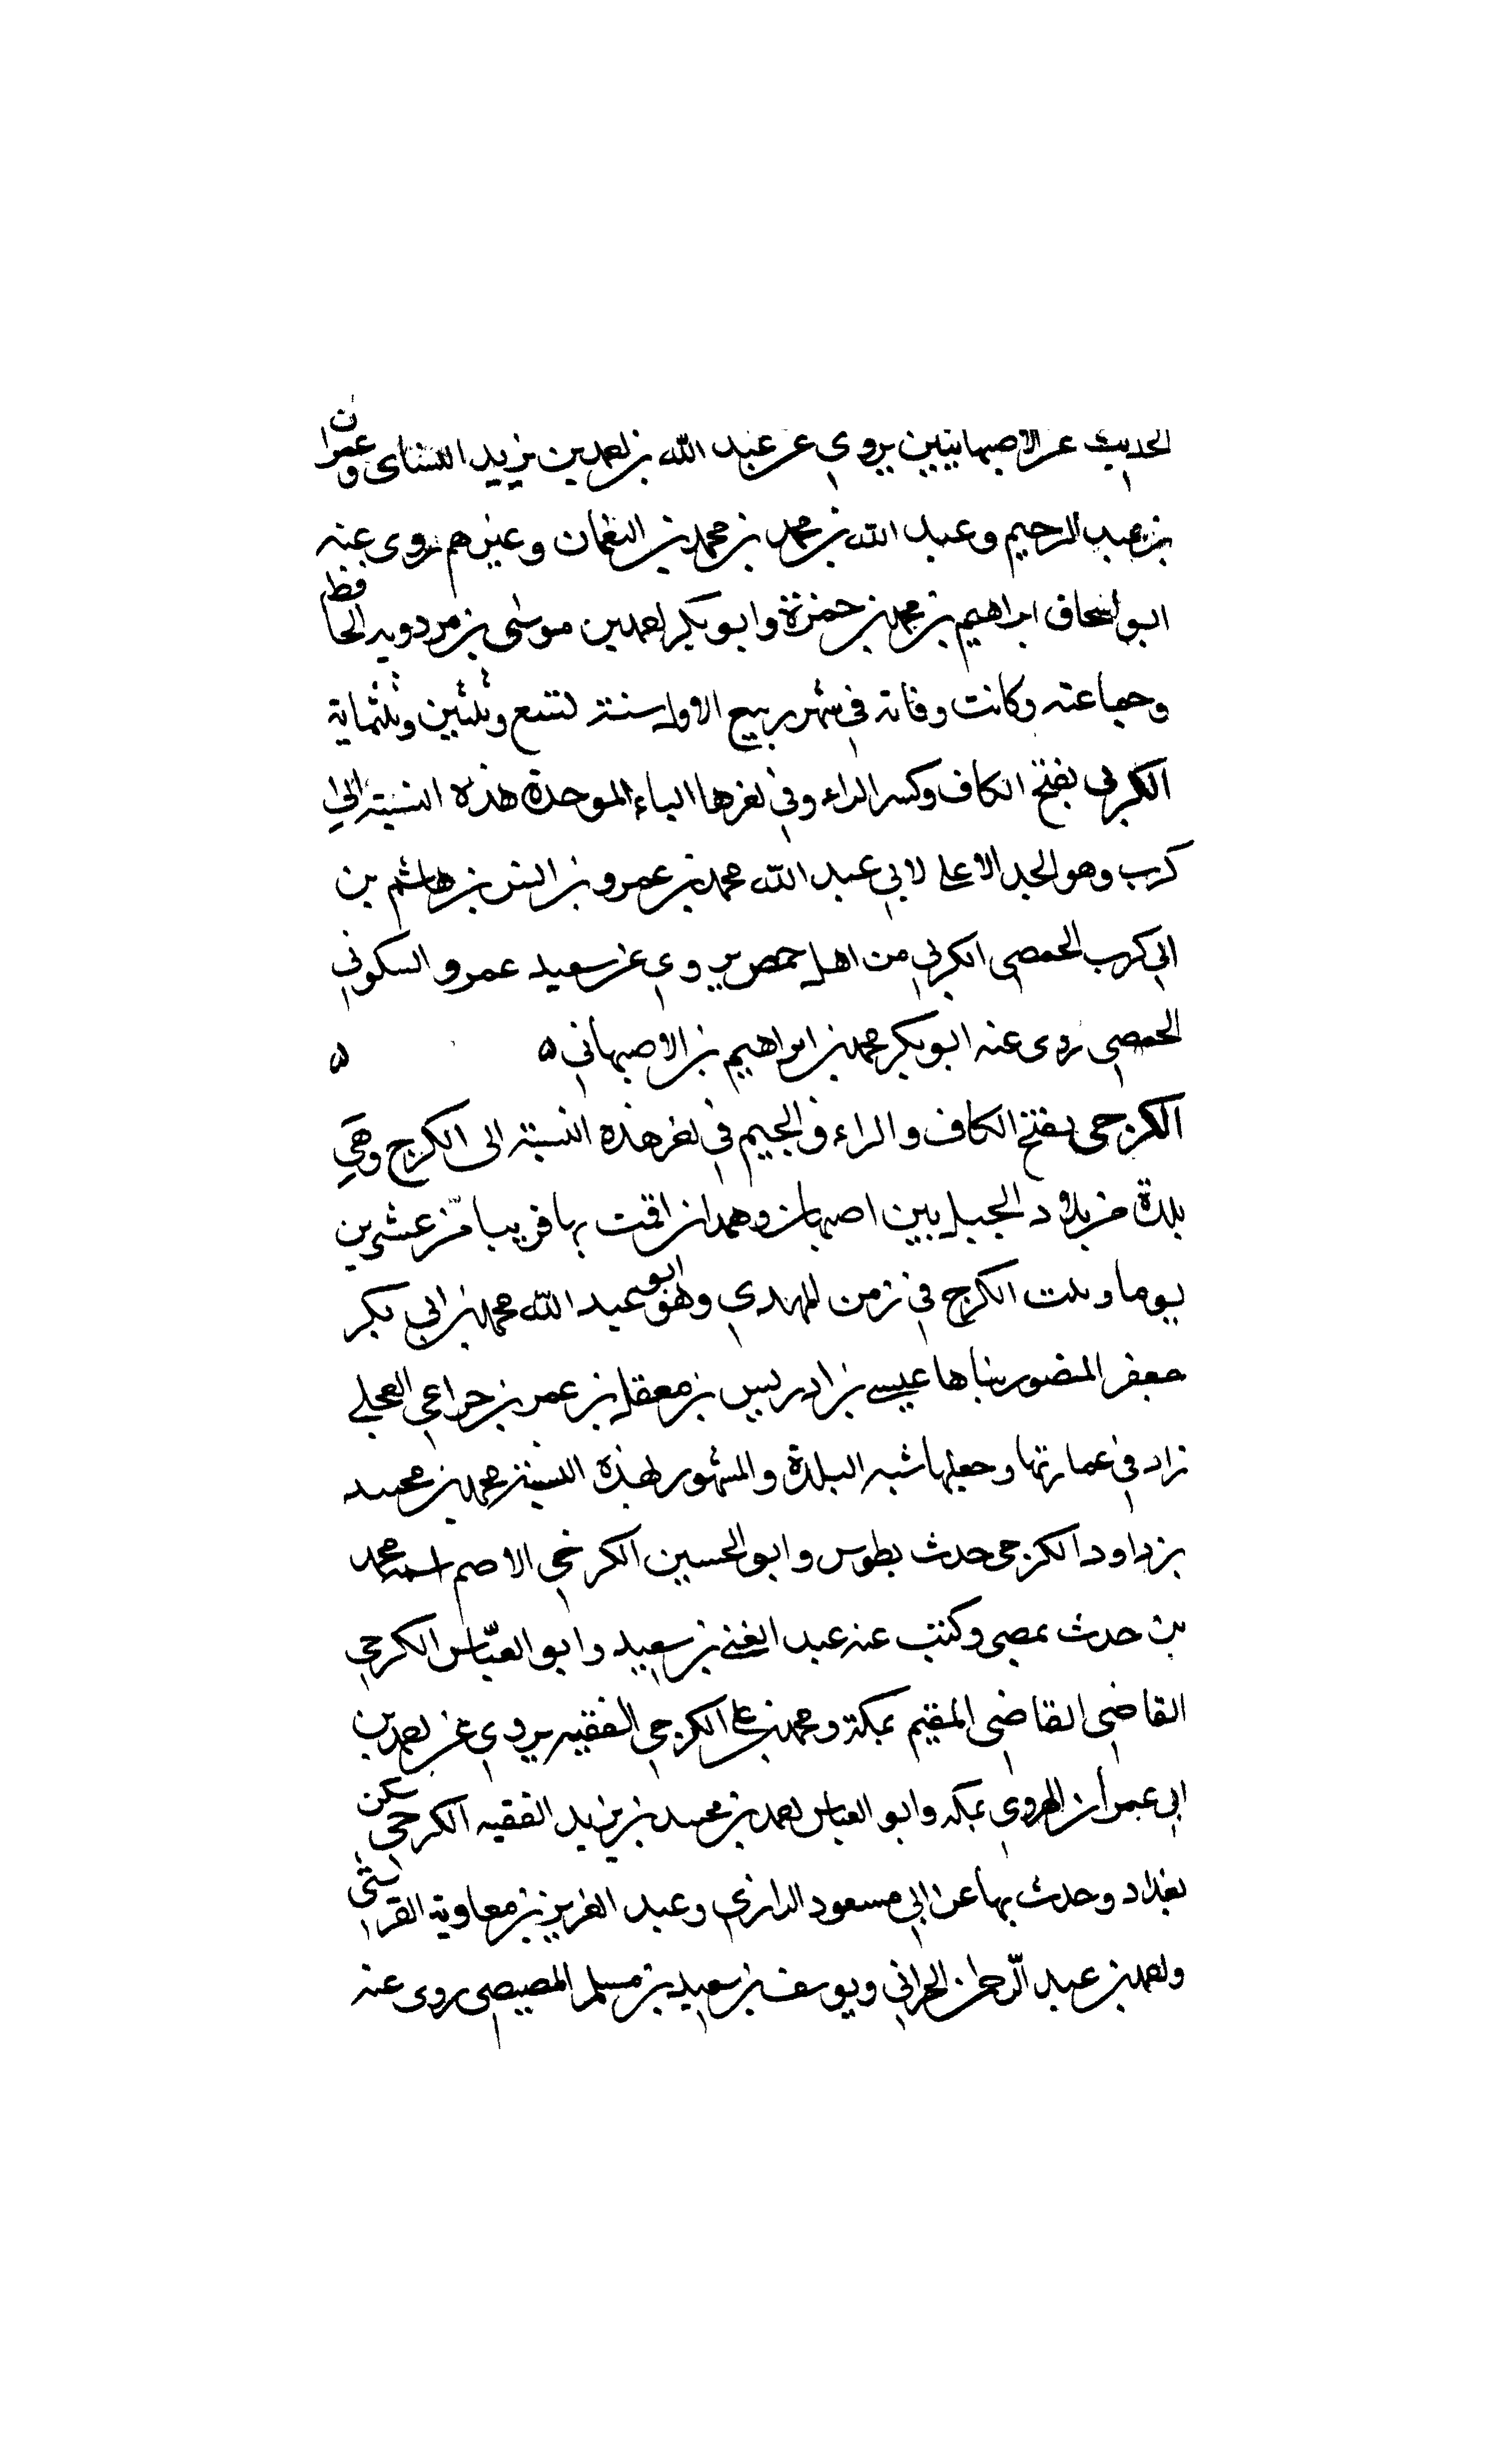 الحديث عن الاصبهانيين يروي عن عبد الله بن احمد بن يزيد الشيباني وعمران
بن عبد الرحيم وعبد الله بن محمد بن محمد بن النعمان وغيرهم روى عنه
ابو اسحاق ابراهيم بن محمد بن حمزة وابو بكر احمد بن موسى بن مردويه الحافظ
وجماعته وكانت وفاته في شهر ربيع الاول سنة تسع وثلثين وثلثماية
الكربى بفتح الكاف وكسر الراء وفي اخرها الباء الموحدة هذه النسبة الى
كرب وهو الجد الاعلى لابي عبد الله محمد بن عمرو بن انس بن هاشم بن
ابي كرب الحمصي الكربي من اهل حمص يروي عن سعيد عمرو السكوني
الحمصي روى عنه ابو بكر محمد بن ابراهيم بن الاصبهاني ه ه
الكرجى بفتح الكاف والراء والجيم في اخر هذه النسبة الى الكرج وهي
بلدة من بلاد الجبل بين اصبهان وهمدان اقمت بها قريبا من عشرين
يوما وبنت الكرج في زمن المهدي وهو ابو عبد الله محمد بن ابي بكر
جعفر المنصور بناها عيسى بن ادريس بن معقل بن عمر بن خزاعي العجلي
زاد في عمارتها وجعلها شبه البلدة والمشهور لهذه النسبة محمد بن محمد
بن داود الكرجى حدث بطوس وابو الحسين الكرخي الاصم اسمه محمد
بن حدث بمصر وكتب عنه عبد الغني بن سعيد وابو العباس الكرجي
القاضي القاضي المقيم بمكة ومحمد بن على الكرجي الفقيه يروي عن احمد بن
ابي عمران الهروي بمكة وابو العباس احمد بن محمد بن يزيد الفقيه الكرجي سكن
بغداد وحدث بها عن ابي مسعود الرازي وعبد العزيز بن معاوية القراشي
واحمد بن عبد الرحمن الحراني ويوسف بن سعيد بن مسلم المصيصي روى عنه